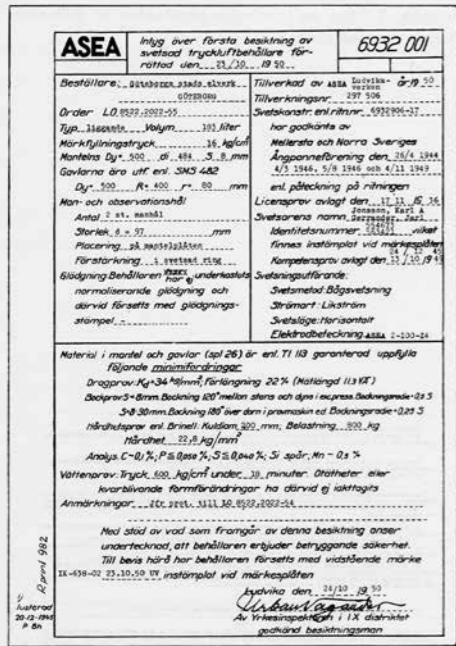 ASEA
Intyg över första besiktning av
svetsad tryckluftbehållare för-
rättad den 23/10 1950
6932 001
Beställare: Göteborgs stads elverk
GÖTEBORG
Order LO 8522.2022-55
Typ liggande Volym 103 liter
Märkfyllningstryck 16 kg/cm²
Mantelns Dy= 500 di 484 S 8 mm
Gavlarna äro utf. enl. SMS 482
Dy= 500 R= 400 r= 80 mm
Man- och observationshål
Antal 2 st. manhål
Storlek 8 = 97 mm
Placering på mantelplåten
Förstärkning 1 svetsad ring
Glödgning Behållaren har ej underkastats
normaliserande glödgning och
därvid försetts med glödgnings-
stämpel -
Tillverkad av ASEA Ludvika-verken år 1950
Tillverkningsnr 297 506
Svetskonstr. enl. ritn.nr: 6932906-17
har godkänts av
Mellersta och Norra Sveriges
Ångpanneförening den 26/4 1944
4/5 1946, 5/8 1946 och 4/11 1949
enl. påteckning på ritningen
Licensprov avlagt den 17 11 36
Svetsarens namn Jonsson, Karl A
Identitetsnummer vilket
finnes instämplat vid märkesplåten
Kompetensprov avlagt den 13/10 1949
Svetsningsutförande:
Svetsmetod: Bågsvetsning
Strömart: Likström
Svetsläge: Horisontalt
Elektrodbeteckning ASEA 2-200-24
Material i mantel och gavlar (spl 26) är enl. TI 113 garanterad uppfylla
följande minimifordringar
Dragprov: Kg=34 kg/mm², Förlängning 22% (Mätlängd 11.3 √A)
Bockprov S<8mm. Bockning 120° mellan stens och dyna i exc.press. Bockningsradie=0,5 S
S=8-30mm. Bockning 180° över dorn i provmaskin ed. Bockningsradie=0,25 S
Hårdhetsprov enl. Brinell. Kuldiam. 200 mm; Belastning 800 kg
Hårdhet 22,8 kg/mm²
Analys. C~0,1%; P≤0,050%; S≤0,040%; Si spår, Mn ~ 0,5 %
Vattenprov: Tryck 600 kg/cm² under 10 minuter. Otätheter eller
kvarblivande formförändringar ha därvid ej iakttagits
Anmärkningar Jfr prot. till LO 8522.2022-54
Med stöd av vad som framgår av denna besiktning anser
undertecknad, att behållaren erbjuder betryggande säkerhet.
Till bevis härå har behållaren försetts med vidstående märke
IX-638-02 23.10.50 UV instämplat vid märkesplåten
Ludvika den 24/10 1950
Urban Vågander
Av Yrkesinspektören i IX distriktet
godkänd besiktningsman
R print 982
Justerad
20-12-1945
P Bn